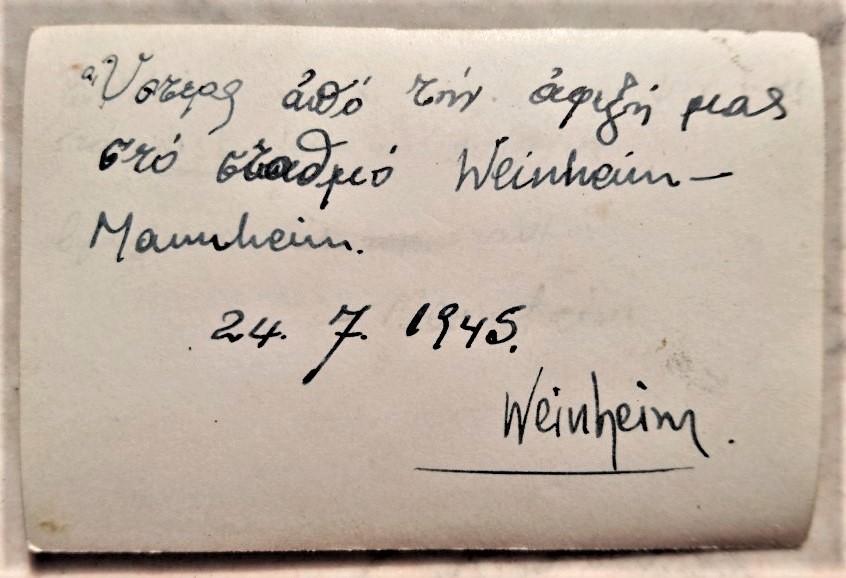 Ὕστερα ἀπό τήν ἀφιξή μας
στό σταθμό Weinheim–
Mannheim.
24. 7. 1945.
Weinheim.